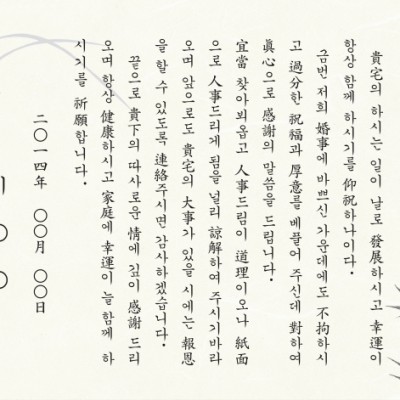 貴宅의 하시는 일이 날로 發展하시고 幸運이
항상 함께 하시기를 仰祝하나이다.
금번 저희 婚事에 바쁘신 가운데에도 不拘하시
고 過分한 祝福과 厚意를 베풀어 주신데 對하여
眞心으로 感謝의 말씀을 드립니다.
宜當 찾아뵈옵고 人事드림이 道理이오나 紙面
으로 人事드리게 됨을 널리 諒解하여 주시기바라
오며 앞으로도 貴宅의 大事가 있을 시에는 報恩
을 할 수 있도록 連絡주시면 감사하겠습니다.
끝으로 貴下의 따사로운 情에 깊이 感謝 드리
오며 항상 健康하시고 家庭에 幸運이 늘 함께 하
시기를 祈願합니다.
二〇一四年 〇〇月 〇〇日
〇 〇